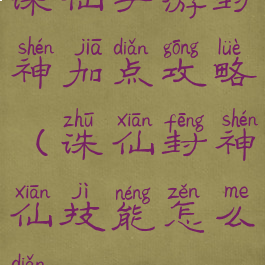 诛仙手游封
shén jiā diǎn gōng lüè
神加点攻略
zhū xiān fēng shén
(诛仙封神
xiān jì néng zěn me
仙技能怎么
diǎn